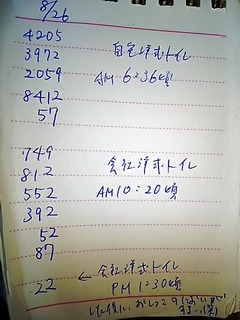 8/26
4205
3972 自宅洋式トイレ
2059 AM 6:36頃
8412
57
749 会社洋式トイレ
812
552 AM10:20頃
392
52
87
22 ← 会社洋式トイレ
PM 1:30頃